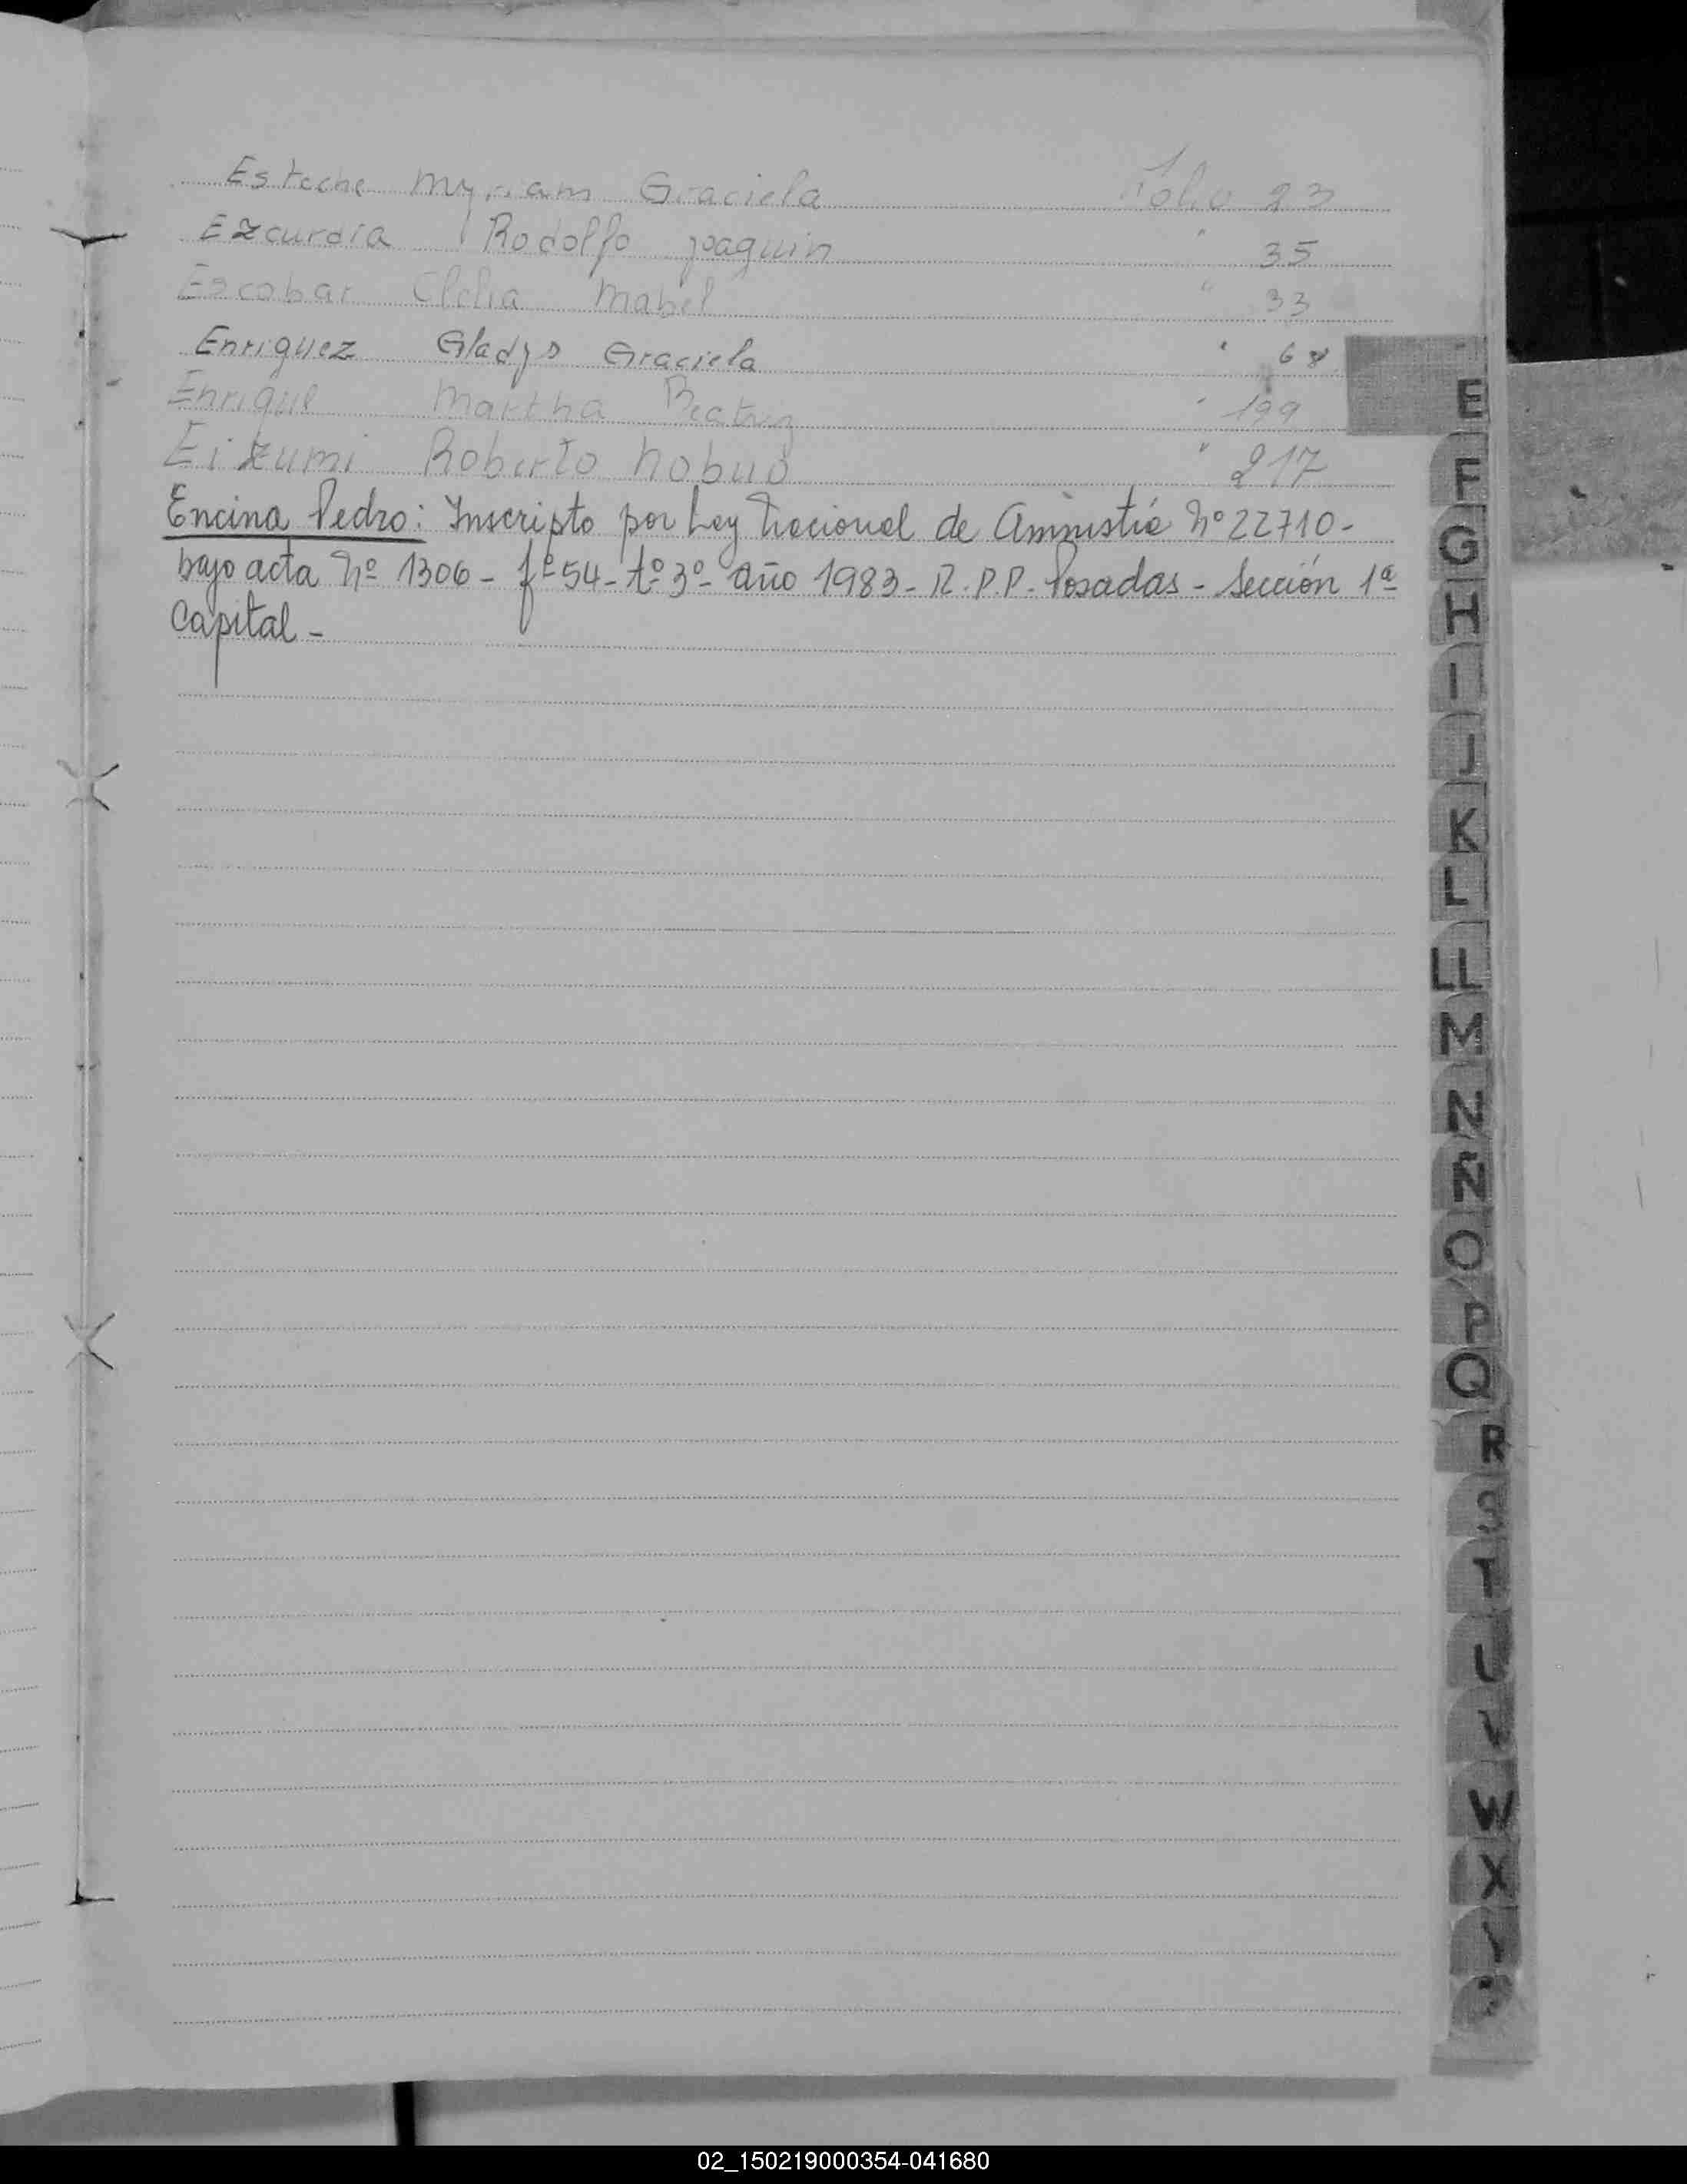 Esteche Myriam Graciela Folio 23
Ezcurdia Rodolfo Joaquin " 35
Escobar Clelia Mabel " 33
Enriquez Gladys Graciela " 68
Enrique Martha Beatriz " 199
Eizumi Roberto Nobuo " 217
Encina Pedro: Inscripto por Ley Nacional de Amnistía Nº 22710-
bajo acta Nº 1306 - fº 54 - tº 3º - año 1983 - R.P.P. Posadas - Sección 1ª
Capital -
E
F
G
H
I
J
K
L
LL
M
N
Ñ
O
P
Q
R
S
T
U
V
W
X
Y
02_150219000354-041680